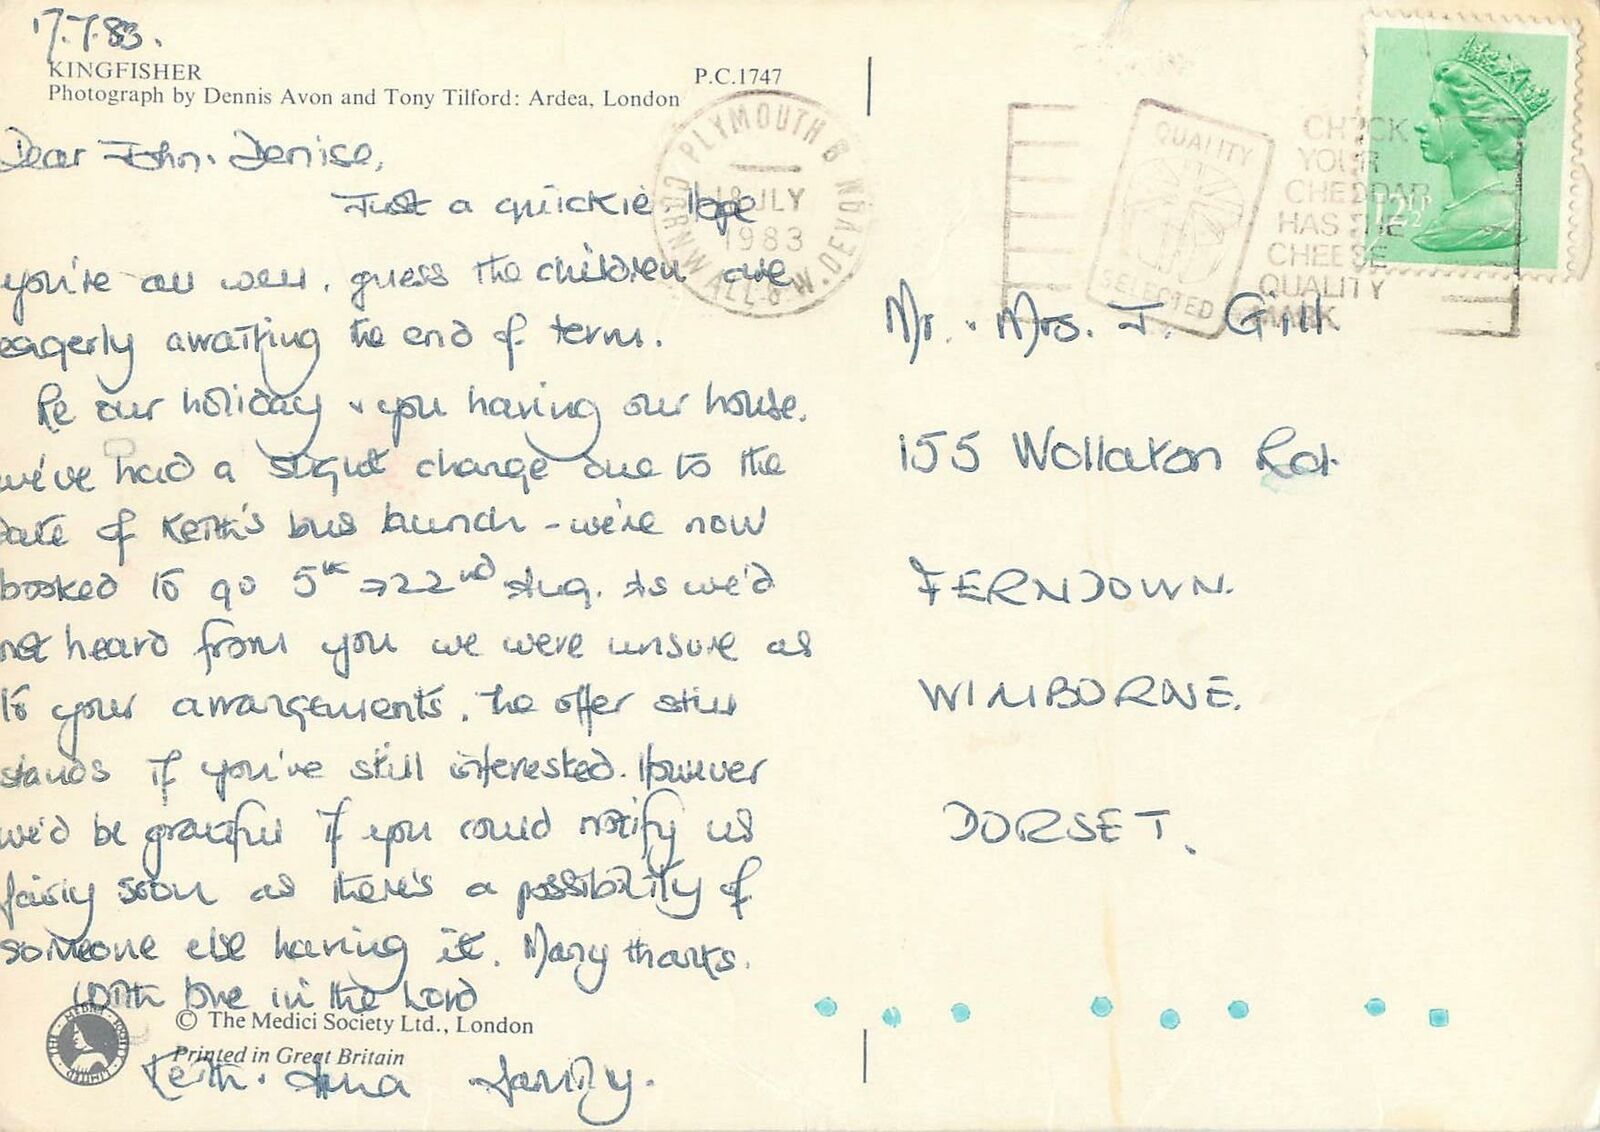 17.7.83.
KINGFISHER
P.C.1747
Photograph by Dennis Avon and Tony Tilford: Ardea, London
Dear John. Denise,
Just a quickie Hope
you're all well. guess the children are
eagerly awaiting the end of term.
Re our holiday & you having our house.
we've had a slight change due to the
date of Keith's bus launch - we're now
booked to go 5th → 22nd Aug. As we'd
not heard from you we were unsure as
to your arrangements. The offer still
stands if you've still interested. However
we'd be grateful if you could notify us
fairly soon as there's a possibility of
someone else having it. Many thanks.
With love in the Lord
Keith. family.
© The Medici Society Ltd., London
Printed in Great Britain
THE MEDICI SOCIETY LIMITED
PLYMOUTH B
CORNWALL & W. DEVON
18 JLY
1983
QUALITY
SELECTED
CHECK
YOUR
CHEDDAR
HAS THE
CHEESE
QUALITY
MARK
12½P
Mr. & Mrs. J. Gill
155 Wollaton Rd.
FERNDOWN.
WIMBORNE.
DORSET.